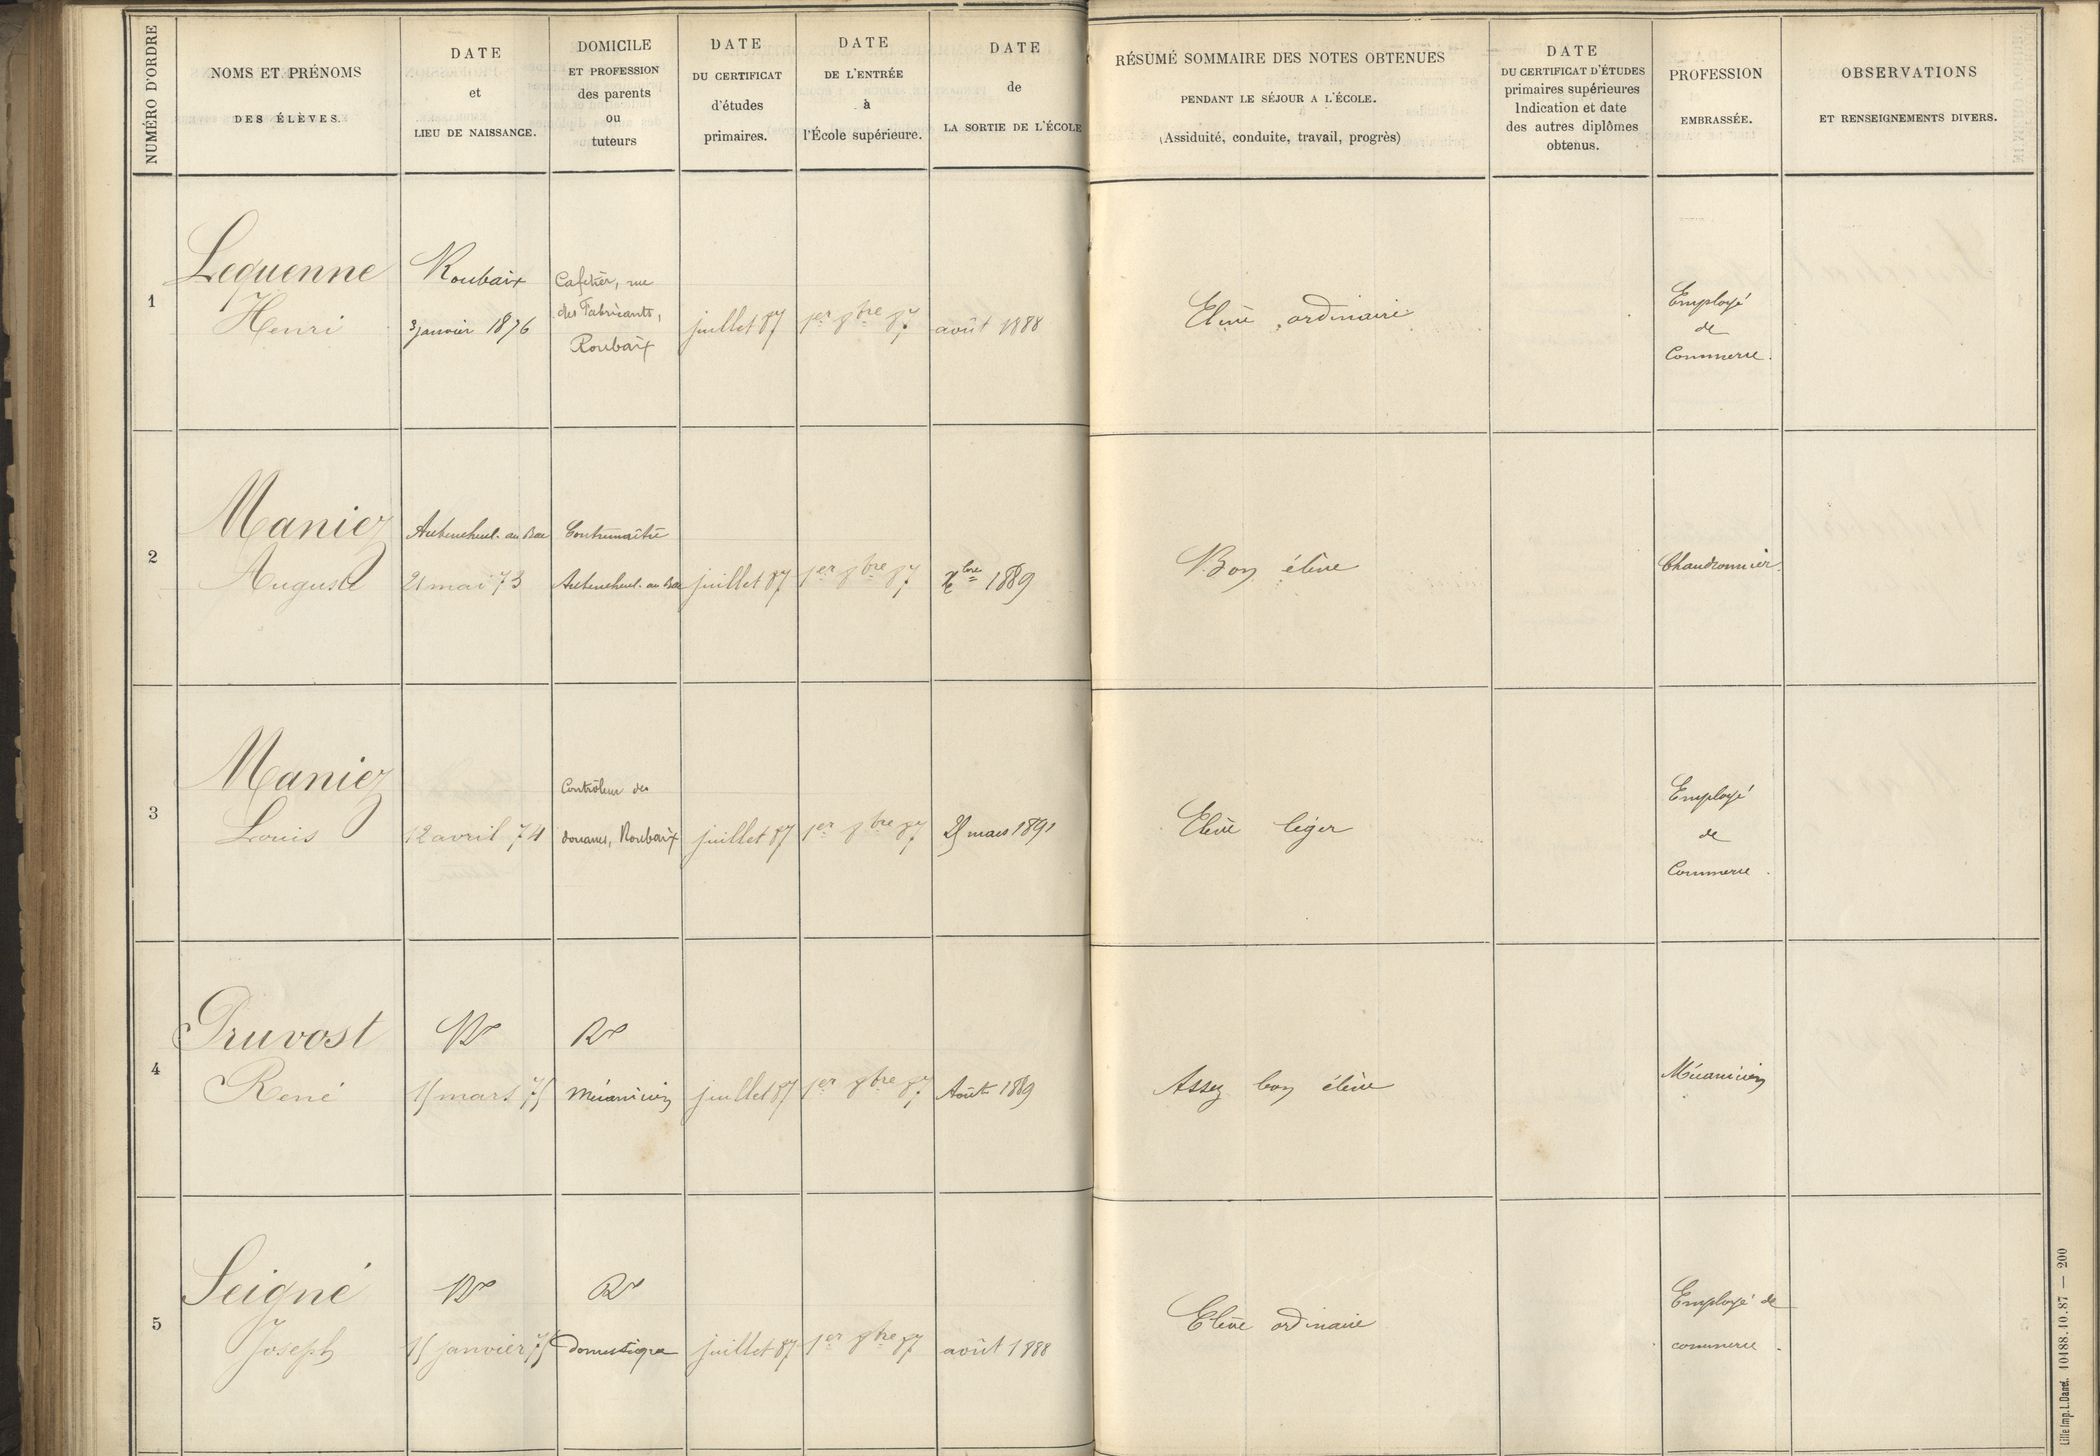 NUMÉRO D'ORDRE
NOMS ET PRÉNOMS
DES ÉLÈVES.
DATE
et
LIEU DE NAISSANCE.
DOMICILE
ET PROFESSION
des parents
ou
tuteurs
DATE
DU CERTIFICAT
d'études
primaires.
DATE
DE L'ENTRÉE
à
l'École supérieure.
DATE
de
LA SORTIE DE L'ÉCOLE
RÉSUMÉ SOMMAIRE DES NOTES OBTENUES
PENDANT LE SÉJOUR A L'ÉCOLE.
(Assiduité, conduite, travail, progrès)
DATE
DU CERTIFICAT D'ÉTUDES
primaires supérieures
Indication et date
des autres diplômes
obtenus.
PROFESSION
EMBRASSÉE.
OBSERVATIONS
ET RENSEIGNEMENTS DIVERS.
1
Lequenne
Henri
Roubaix
3 janvier 1876
Cafetier, rue
des Fabricants,
Roubaix
juillet 87
1er 8bre 87
août 1888
Elève ordinaire
Employé
de
Commerce.
2
Maniez
Auguste
Aubencheul-au-Bac
21 mai 73
Contremaître
Aubencheul-au-Bac
juillet 87
1er 8bre 87
Xbre 1889
Bon élève
Chaudronnier.
3
Maniez
Louis
12 avril 74
Contrôleur des
douanes, Roubaix
juillet 87
1er 8bre 87
25 mars 1891
Elève léger
Employé
de
Commerce.
4
Pruvost
René
Rx
15 mars 75
Rx
Mécanicien
juillet 87
1er 8bre 87
Août 1889
Assez bon élève
Mécanicien
5
Seigné
Joseph
Rx
15 janvier 75
Rx
domestique
juillet 87
1er 8bre 87
août 1888
Elève ordinaire
Employé de
commerce.
Lille Imp. L. Danel. 10188.10.87 — 200